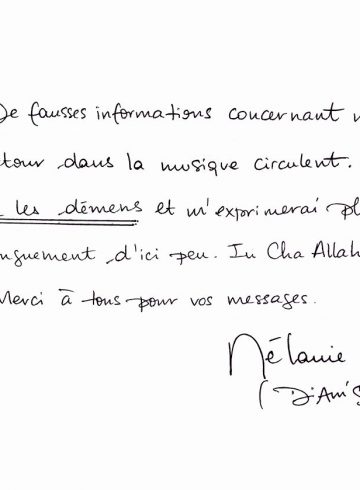 De fausses informations concernant
tour dans la musique circulent.
les démens et m'exprimerai pl
nguement d'ici peu. In Cha Allah
Merci à tous pour vos messages.
Mélanie
(Diam's